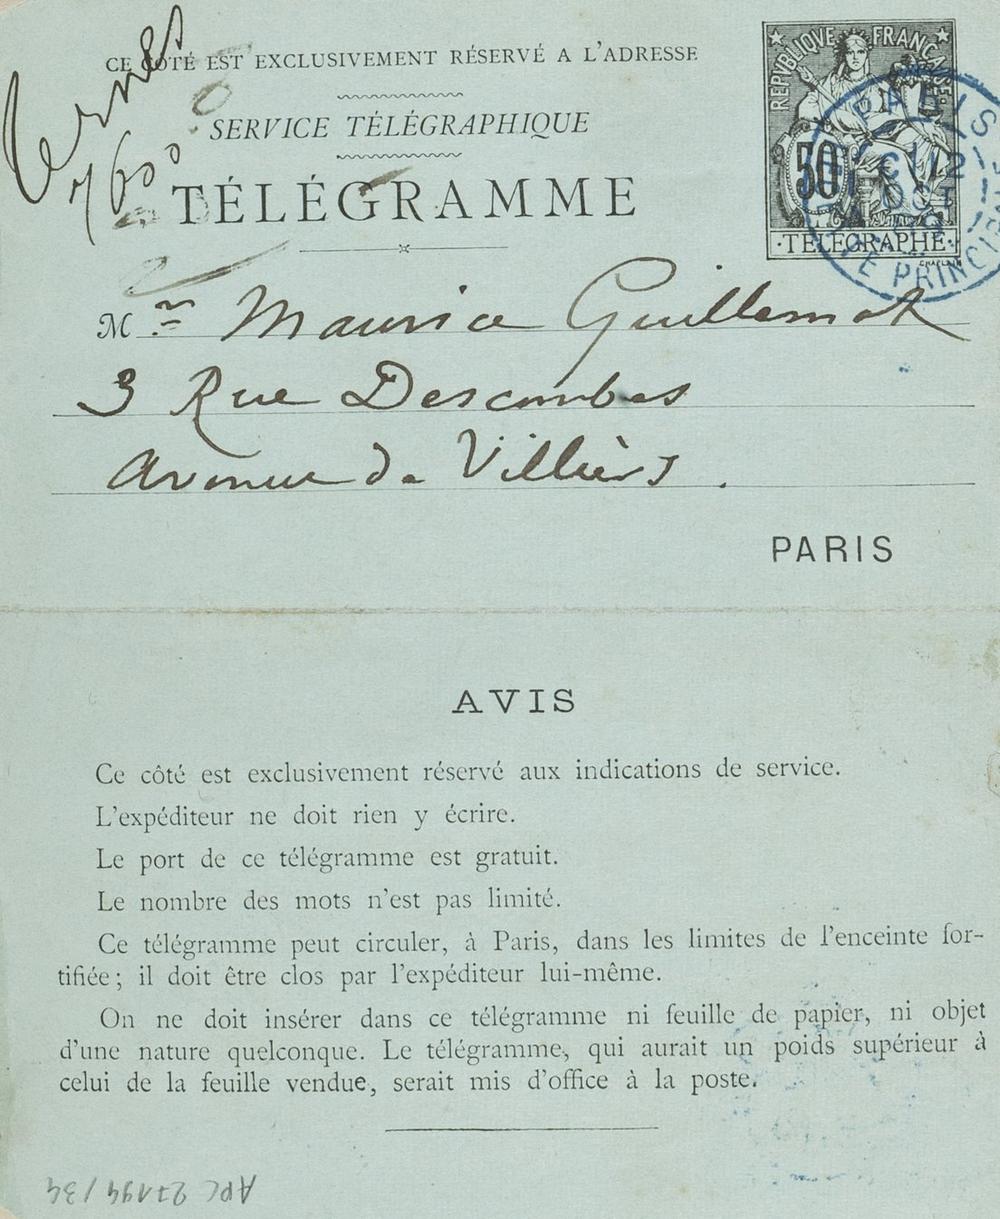 CE CÔTÉ EST EXCLUSIVEMENT RÉSERVÉ A L'ADRESSE
Ternes
7600
SERVICE TÉLÉGRAPHIQUE
TÉLÉGRAMME
REPVBLIQVE FRANCAISE
50
TÉLÉGRAPHE
CHAPLAIN
PARIS
12
OCT
PRINC
Mr Maurice Guillemot
3 Rue Descombes
Avenue de Villièrs.
PARIS
AVIS
Ce côté est exclusivement réservé aux indications de service.
L'expéditeur ne doit rien y écrire.
Le port de ce télégramme est gratuit.
Le nombre des mots n'est pas limité.
Ce télégramme peut circuler, à Paris, dans les limites de l'enceinte for-
tifiée; il doit être clos par l'expéditeur lui-même.
On ne doit insérer dans ce télégramme ni feuille de papier, ni objet
d'une nature quelconque. Le télégramme, qui aurait un poids supérieur à
celui de la feuille vendue, serait mis d'office à la poste.
APC 27194/34